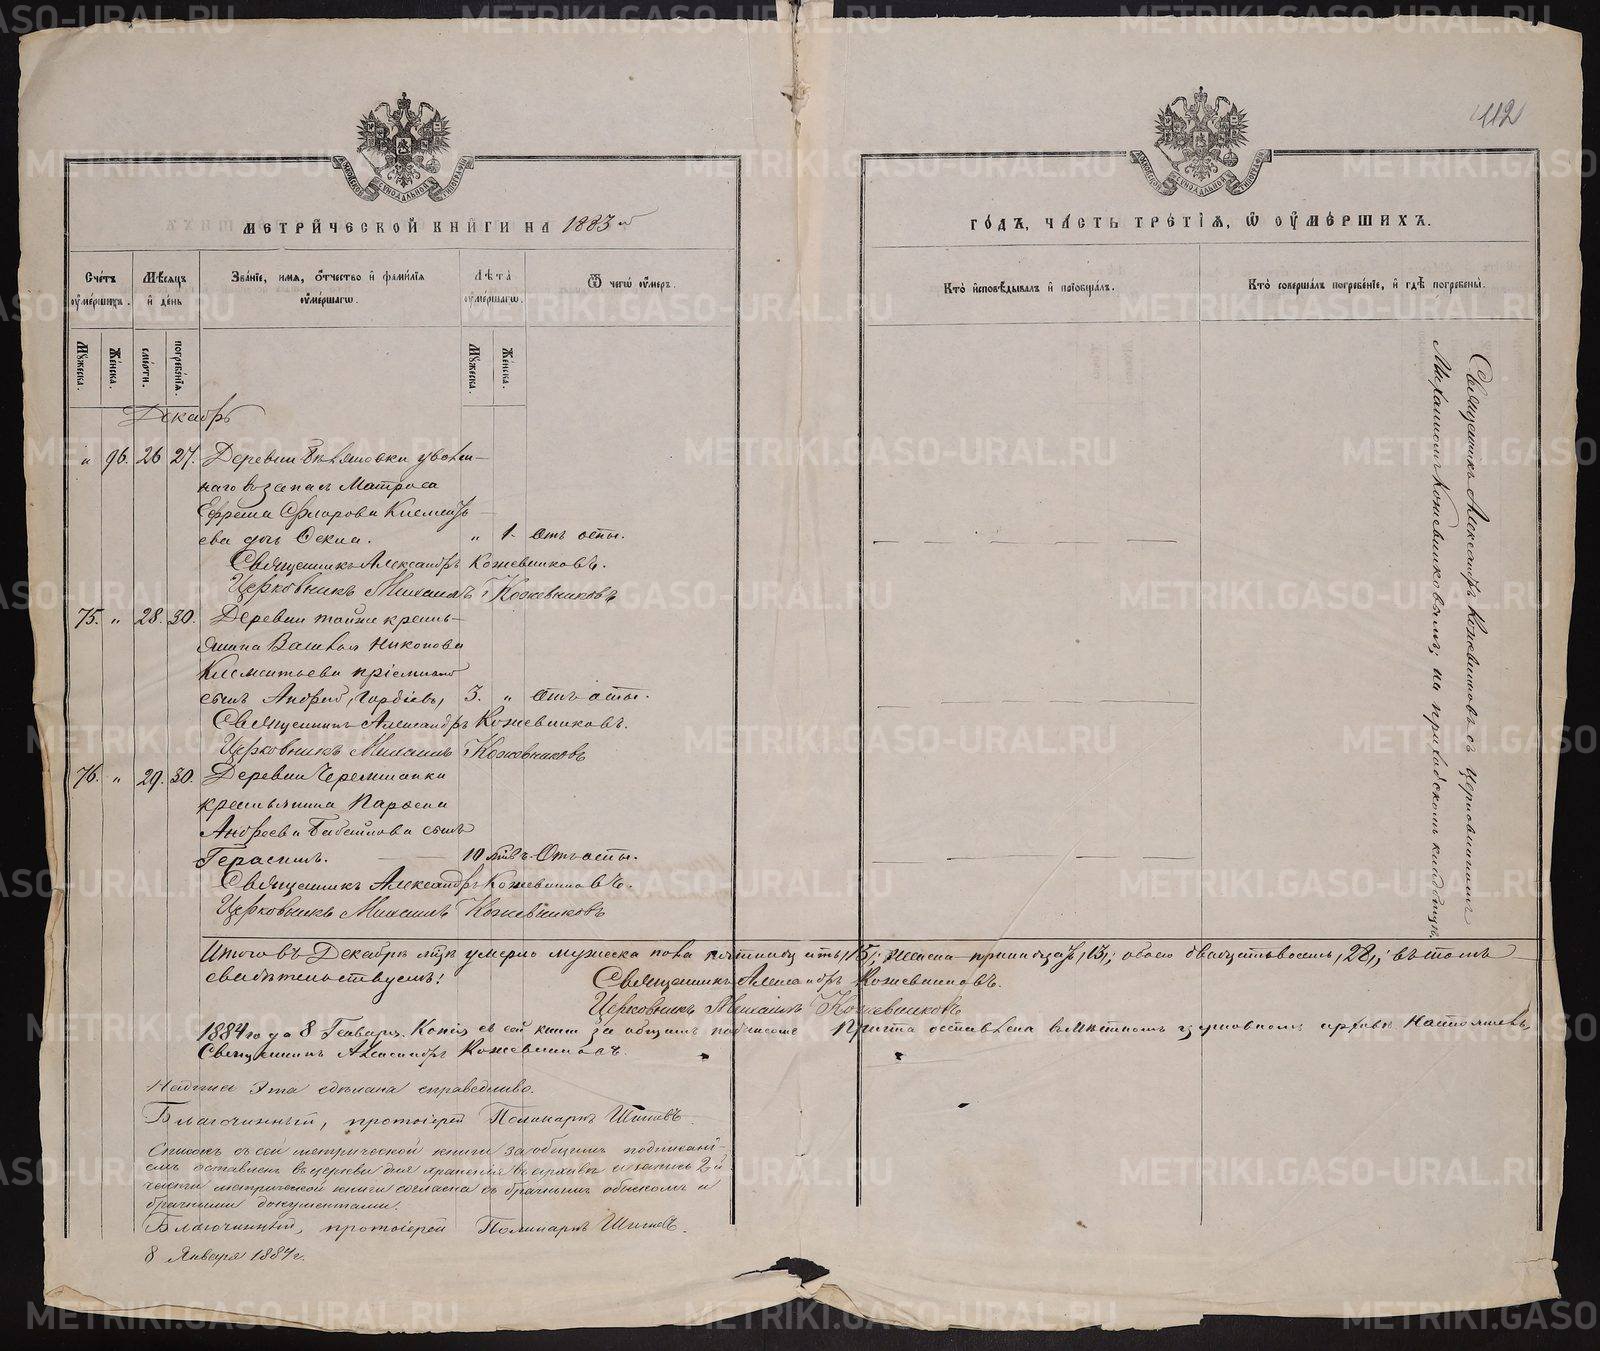 412
МЕТРИЧЕСКОЙ КНИГИ НА 1883 й
ГОДЪ, ЧАСТЬ ТРЕТІЯ, Ѿ ОУМЕРШИХЪ.
Счетъ оумершихъ.
Мѣсяцъ и день
Званіе, имя, отчество и фамилія оумершагѡ.
Лѣта оумершагѡ.
Ѿ чегѡ оумеръ.
Кто исповѣдывалъ и пріобщалъ.
Кто совершалъ погребеніе, и гдѣ погребены.
Мужеска.
Женска.
смерти.
погребенія.
Мужеска.
Женска.
Декабрь
" 96. 26 27. Деревни уволен-
наго въ запасъ Матроса
Ефрема Клементь-
ева дочь Фекла. " 1. Отъ оспы.
Священникъ Александръ Кожевниковъ.
Церковникъ Михаилъ Кожевниковъ
75. " 28. 30. Деревни тойже кресть-
янина Никонова
Клементьева пріемный
сынъ Андрей, 3. " Отъ оспы.
Священникъ Александръ Кожевниковъ.
Церковникъ Михаилъ Кожевниковъ
76. " 29. 30. Деревни Черемшанки
крестьянина
Андреева сынъ
Герасимъ. 10 мѣс. Отъ оспы.
Священникъ Александръ Кожевниковъ.
Церковникъ Михаилъ Кожевниковъ
Священникъ Александръ Кожевниковъ съ церковникомъ
Михаиломъ Кожевниковымъ; на приходскомъ кладбищѣ.
Итого въ Декабрѣ м҃цѣ умерло мужеска пола пятнадцать, 15,; женска тринадцать, 13,; обоего двадцать восемь, 28,; въ томъ
свидѣтельствуемъ:
Священникъ Александръ Кожевниковъ.
Церковникъ Михаилъ Кожевниковъ
1884 го года 8 Генваря. Копія съ сей книги за общимъ подписомъ Причта оставлена въ мѣстномъ церковномъ архивѣ
Священникъ Александръ Кожевниковъ.
Надпись эта сдѣлана справедливо.
Благочинный, протоіерей
Списокъ съ сей метрической книги за общимъ подписані-
емъ оставленъ въ церкви для храненія въ архивѣ и запись 2й
части метрической книги согласна съ брачнымъ обыскомъ и
брачными документами.
Благочинный, протоіерей
8 Января 1884 г.
METRIKI.GASO-URAL.RU